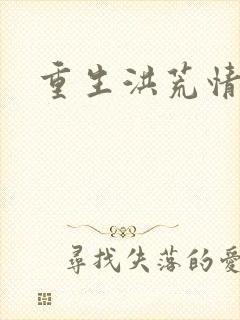 重生洪荒情
尋找失落的愛